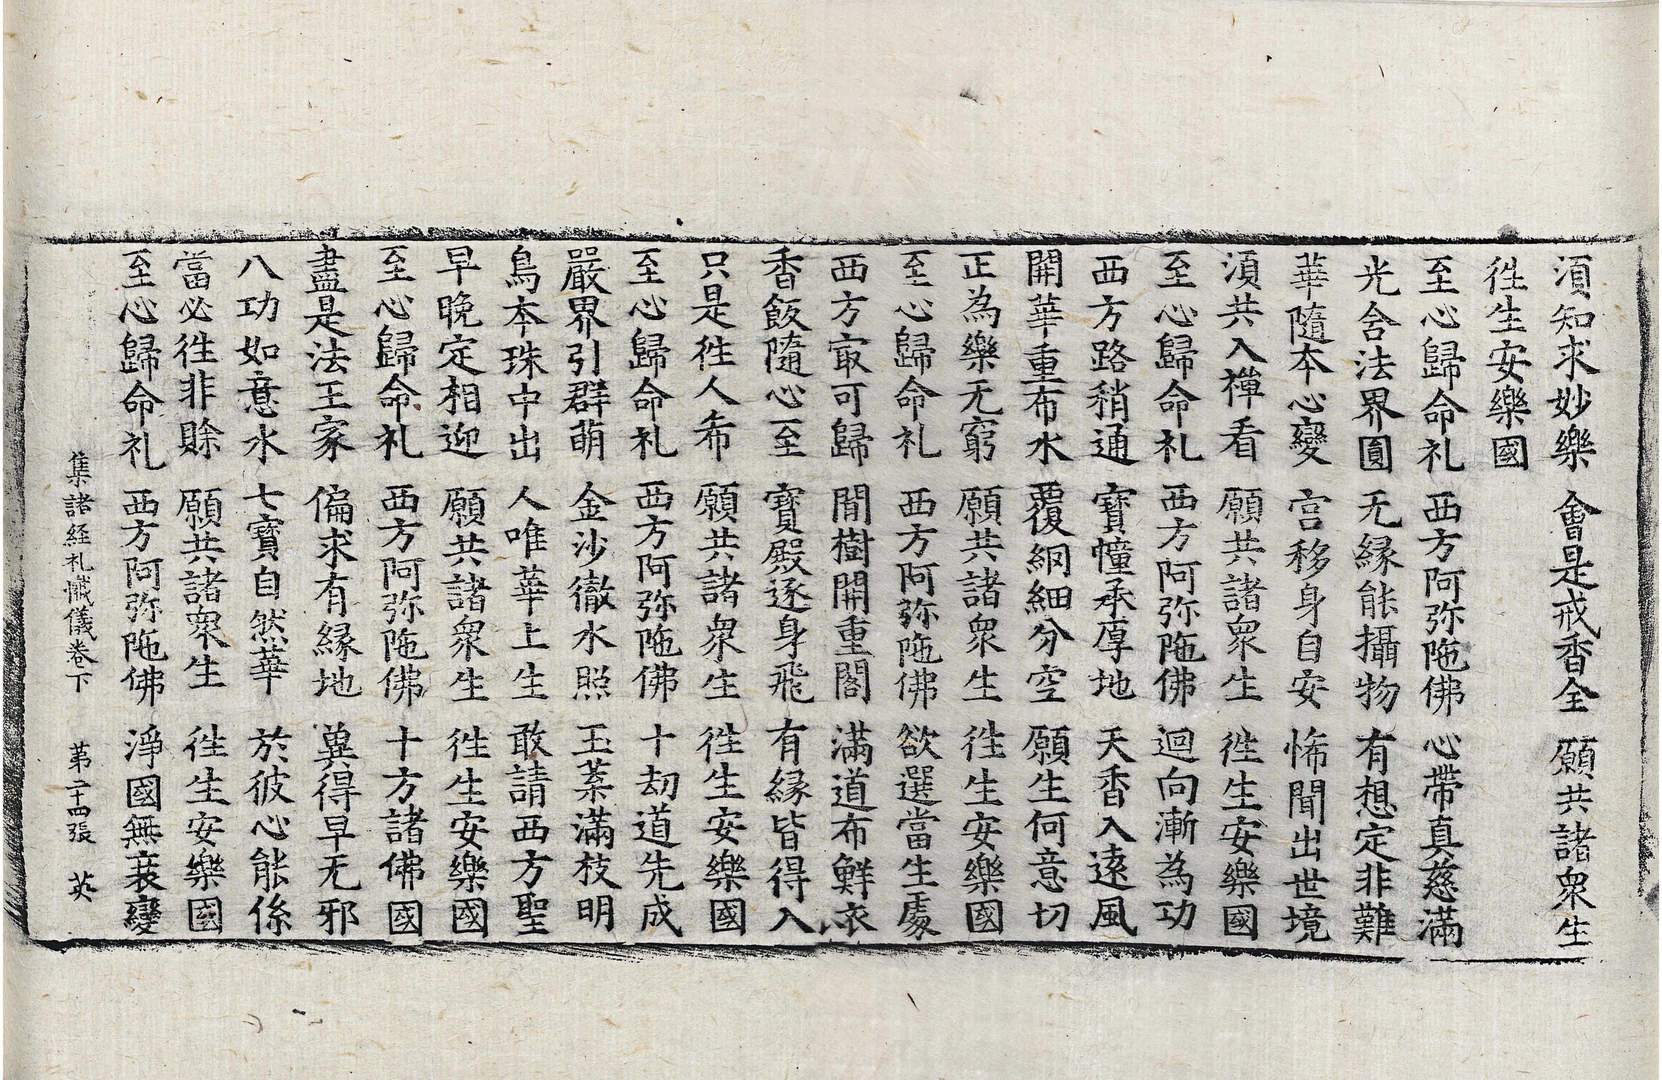 湏知求妙樂　會是戒香全　願共諸衆生
徃生安樂國
至心歸命礼　西方阿弥陁佛　心帶真慈滿
光含法界圓　无縁能攝物　有想定非難
華隨本心變　宫移身自安　悕聞出世境
湏共入禪看　願共諸衆生　徃生安樂國
至心歸命礼　西方阿弥陁佛　迴向漸為功
西方路稍通　寶幢承厚地　天香入遠風
開華重布水　覆網細分空　願生何意切
正為樂无窮　願共諸衆生　徃生安樂國
至心歸命礼　西方阿弥陁佛　欲選當生處
西方㝡可歸　間樹開重閣　滿道布鮮衣
香飯隨心至　寶殿逐身飛　有縁皆得入
只是徃人希　願共諸衆生　徃生安樂國
至心歸命礼　西方阿弥陁佛　十劫道先成
嚴界引群萌　金沙徹水照　玉葉滿枝明
鳥本珠中出　人唯華上生　敢請西方聖
早晚定相迎　願共諸衆生　徃生安樂國
至心歸命礼　西方阿弥陁佛　十方諸佛國
盡是法王家　偏求有縁地　冀得早无邪
八功如意水　七寶自然華　於彼心能係
當必徃非賒　願共諸衆生　徃生安樂國
至心歸命礼　西方阿弥陁佛　淨國無衰變
集諸経礼懺儀卷下　苐二十四張　英